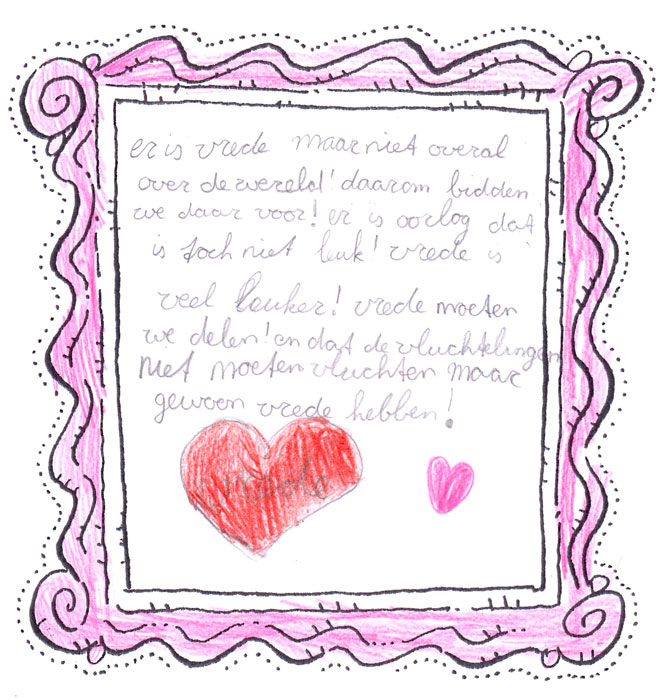 er is vrede maar niet overal
over de wereld! daarom bidden
we daar voor! er is oorlog dat
is toch niet leuk! vrede is
veel leuker! vrede moeten
we delen! en dat de vluchtelingen
niet moeten vluchten maar
gewoon vrede hebben!